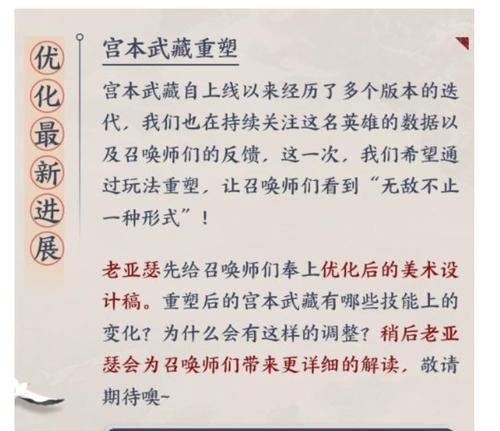 优化最新进展
宫本武藏重塑
宫本武藏自上线以来经历了多个版本的迭
代，我们也在持续关注这名英雄的数据以
及召唤师们的反馈，这一次，我们希望通
过玩法重塑，让召唤师们看到“无敌不止
一种形式”！
老亚瑟先给召唤师们奉上优化后的美术设
计稿。重塑后的宫本武藏有哪些技能上的
变化？为什么会有这样的调整？稍后老亚
瑟会为召唤师们带来更详细的解读，敬请
期待噢~